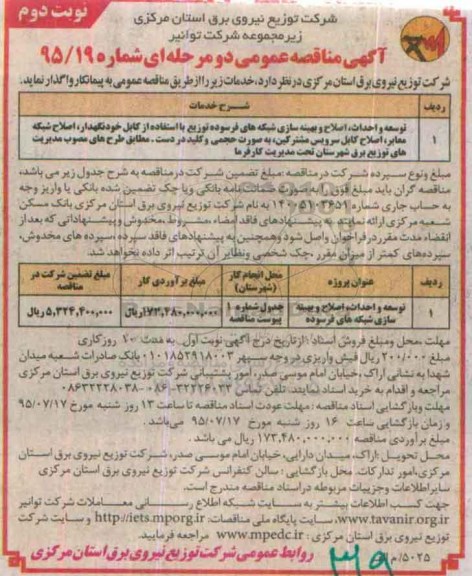 نوبت دوم
شرکت توزیع نیروی برق استان مرکزی
زیرمجموعه شرکت توانیر
آگهی مناقصه عمومی دو مرحله ای شماره ۹۵/۱۹
شرکت توزیع نیروی برق استان مرکزی در نظر دارد، خدمات زیر را از طریق مناقصه عمومی به پیمانکار واگذار نماید.
ردیف شرح خدمات
۱ توسعه و احداث، اصلاح و بهینه سازی شبکه های فرسوده توزیع با استفاده از کابل خودنگهدار، اصلاح شبکه
معابر، اصلاح کابل سرویس مشترکین، به صورت حجمی و کلید در دست، مطابق طرح های مصوب مدیریت
های توزیع برق شهرستان تحت مدیریت کارفرما
مبلغ و نوع سپرده شرکت در مناقصه: مبلغ تضمین شرکت در مناقصه به شرح جدول زیر می باشد،
مناقصه گران باید مبلغ فوق را به صورت ضمانت نامه بانکی و یا چک تضمین شده بانکی یا واریز وجه
به حساب جاری شماره به نام شرکت توزیع نیروی برق استان مرکزی بانک مسکن
شعبه مرکزی ارائه نمایند. به پیشنهادهای فاقد امضاء، مشروط، مخدوش و پیشنهاداتی که بعد از
انقضاء مدت مقرر در فراخوان واصل شود و همچنین به پیشنهادهای فاقد سپرده، سپرده های مخدوش،
سپرده‌های کمتر از میزان مقرر، چک شخصی و نظایر آن ترتیب اثر داده نخواهد شد.
ردیف عنوان پروژه محل انجام کار (شهرستان) مبلغ برآوردی کار مبلغ تضمین شرکت در مناقصه
۱ توسعه و احداث، اصلاح و بهینه سازی شبکه های فرسوده جدول شماره ۱ پیوست مناقصه ۱۷۳,۴۸۰,۰۰۰,۰۰۰ ریال ۵,۳۲۴,۴۰۰,۰۰۰ ریال
مهلت، محل و مبلغ فروش اسناد: از تاریخ درج آگهی نوبت اول به مدت روزکاری
مبلغ ۲۰۰/۰۰۰ ریال فیش واریزی در وجه سپهر ۰۱۰۱۸۵۲۹۱۸۰۰۳ بانک صادرات شعبه میدان
شهدا به نشانی اراک، خیابان امام موسی صدر، امور پشتیبانی شرکت توزیع نیروی برق استان مرکزی
مراجعه و اقدام به خرید اسناد نمایند. تلفن تماس ۳۲۲۲۶۰۳۳-۰۸۶ ۰۸۶۳۲۲۲۸۰۳۸
مهلت و بازگشایی اسناد مناقصه: مهلت عودت اسناد مناقصه تا ساعت ۱۳ روز شنبه مورخ ۹۵/۰۷/۱۷
و زمان بازگشایی ساعت ۱۶ روز شنبه مورخ ۹۵/۰۷/۱۷ می‌باشد.
مبلغ برآوردی مناقصه ۱۷۳,۴۸۰,۰۰۰,۰۰۰ ریال می باشد.
محل تحویل: اراک، میدان دارایی، خیابان امام موسی صدر، شرکت توزیع نیروی برق استان
مرکزی، امور تدارکات. محل بازگشایی: سالن کنفرانس شرکت توزیع نیروی برق استان مرکزی
سایر اطلاعات و جزییات مربوطه در اسناد مناقصه مندرج است.
جهت کسب اطلاعات بیشتر به سایت شبکه اطلاع رسانی معاملات شرکت توانیر
www.tavanir.org.ir، سایت پایگاه ملی مناقصات: http://iets.mporg.ir و سایت شرکت
توزیع نیروی برق استان مرکزی: www.mpedc.ir مراجعه فرمایید.
۵۰۲۵/م الف روابط عمومی شرکت توزیع نیروی برق استان مرکزی